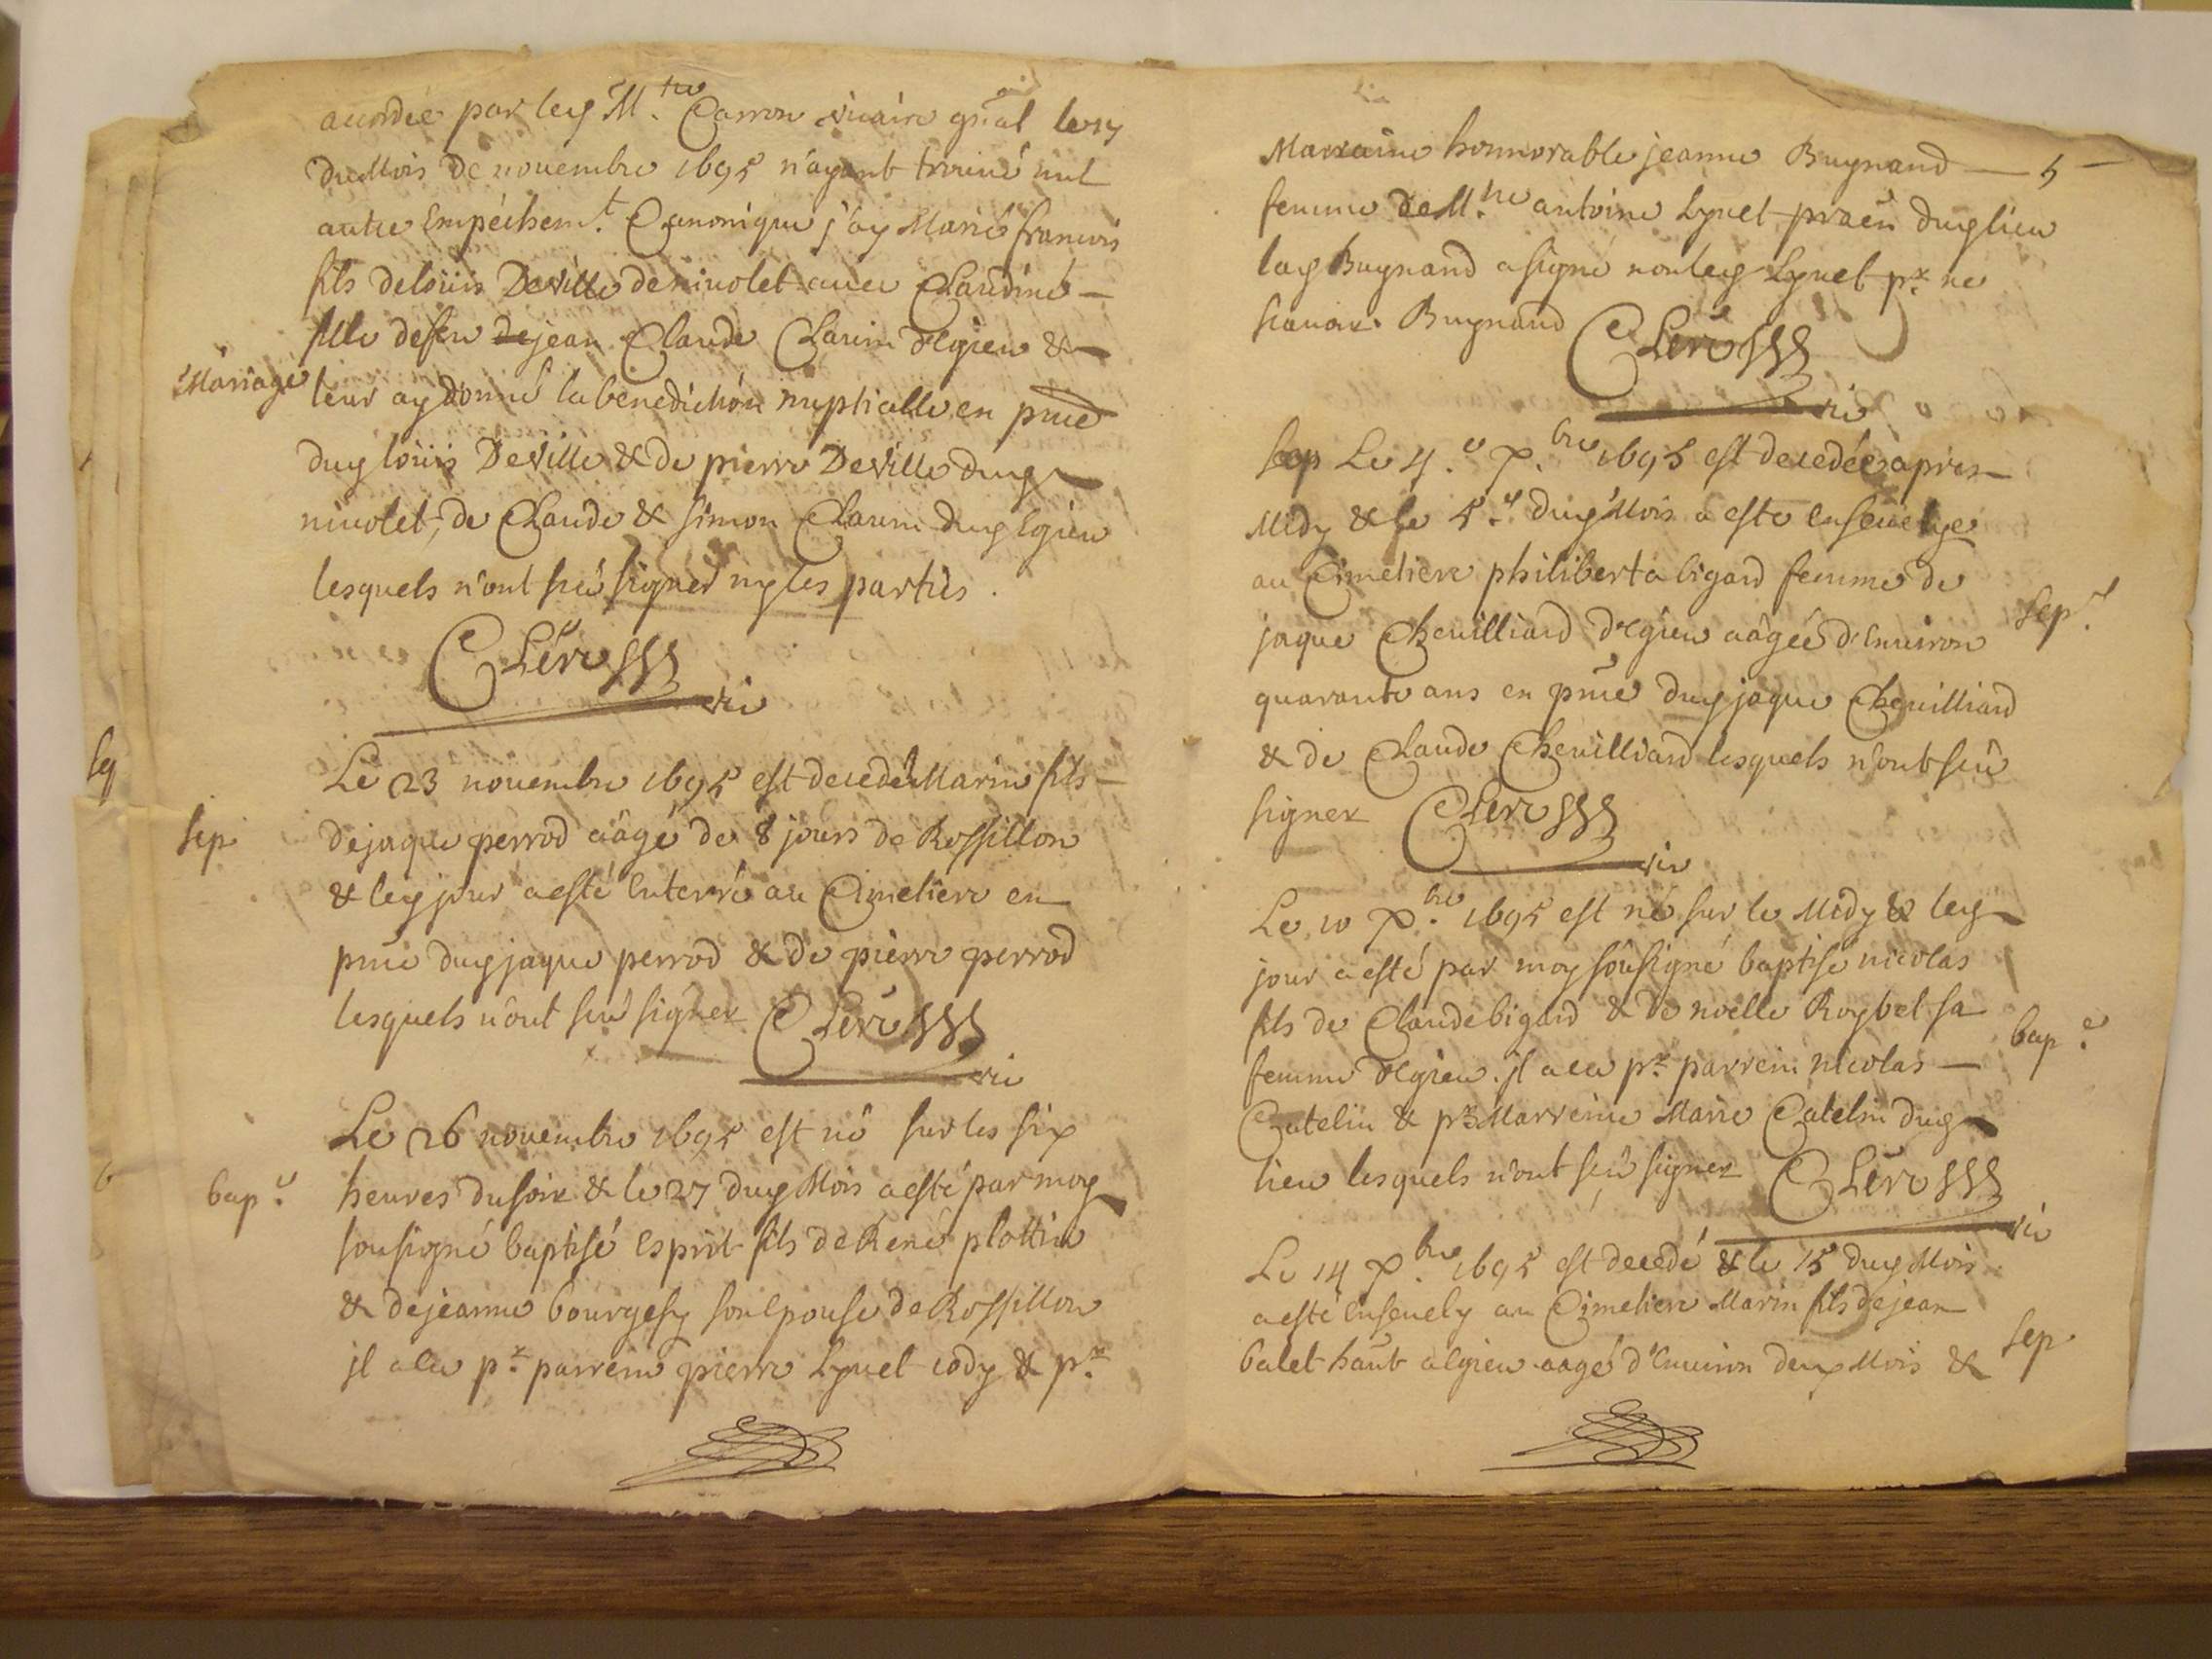 accordée par ley M.tre Carron vicaire gñal le 17
du Mois de novembre 1695 n'ayant trouvé nul
autre Empéchem.t Canonique j'ay Marié francois
fils de loüis Deville de nivolet avec Claudine —
fille de feu de jean Claude Clarin d'Egieu &
Mariage
leur ay donné la benediction nuptialle en pñce
dug loüis Deville & de pierre Deville dug
nivolet, de Claude & Simon Clarin dug Egieu
lesquels n'ont sceu signer ny les parties.
Clerc
vic
Le 23 novembre 1695 est decedé Marin fils —
sep
de jaque perrod aâgé de 8 jours de Rossillon
& ley jour a esté Enterré au Cimetiere en
pñce dug jaque perrod & de pierre perrod
lesquels n'ont sceu signer Clerc
vic
Le 26 novembre 1695 est né sur les six
bap.e
heures du soir & le 27 dug Mois a esté par moy
sousigné baptisé Esprit fils de René plottin
& de jeanne bourgesy son Epouse de Rossillon
jl a eu p.r parrein pierre Lynet cody & p.r
Marraine honnorable jeanne Buynand — 5 —
femme de M.tre antoine Lynet praēn dug lieu
lag Buynand a signé non ley Lynet p.r ne
scavoir. Buynand Clerc
vic
sep Le 4.e X.bre 1695 est decedée apres
Midy & le 5.e dug Mois a esté Ensevelye
au Cimetiere philiberta bigard femme de
sep.e
jaque Chevilliard d'Egieu aâgée d'Environ
quarante ans en pñce dug jaque Chevilliard
& de Claude Chevilliard lesquels n'ont sceu
signer Clerc
vic
Le 10 X.bre 1695 est né sur le Midy & ley
jour a esté par moy soussigné baptisé nicolas
fils de Claude bigard & de noelle Roybet sa
bap.e
femme d'Egieu. jl a eu p.r parrein nicolas —
Catelin & p.r Marreine Marie Catelin dug
lieu lesquels n'ont sceu signer Clerc
vic
Le 14 X.bre 1695 est decedé & le 15 dug Mois
a esté Ensevely au Cimetiere Marin fils de jean
sep
balet haut a Egieu aagé d'Environ deux Mois &